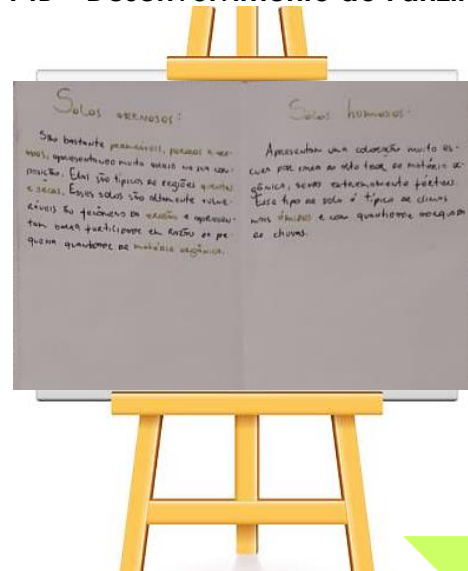 Solos arenosos:
São bastante permeáveis, porosos e are-
nosos, apresentando muita areia na sua com-
posição. Eles são típicos de regiões quentes
e secas. Esses solos são altamente vulne-
ráveis ao fenômeno da erosão e apresen-
tam baixa fertilidade em razão da pe-
quena quantidade de matéria orgânica.
Solos humosos:
Apresentam uma coloração muito es-
cura por causa do alto teor de matéria or-
gânica, sendo extremamente férteis.
Esse tipo de solo é típico de climas
mais úmidos e com quantidade
de chuvas.